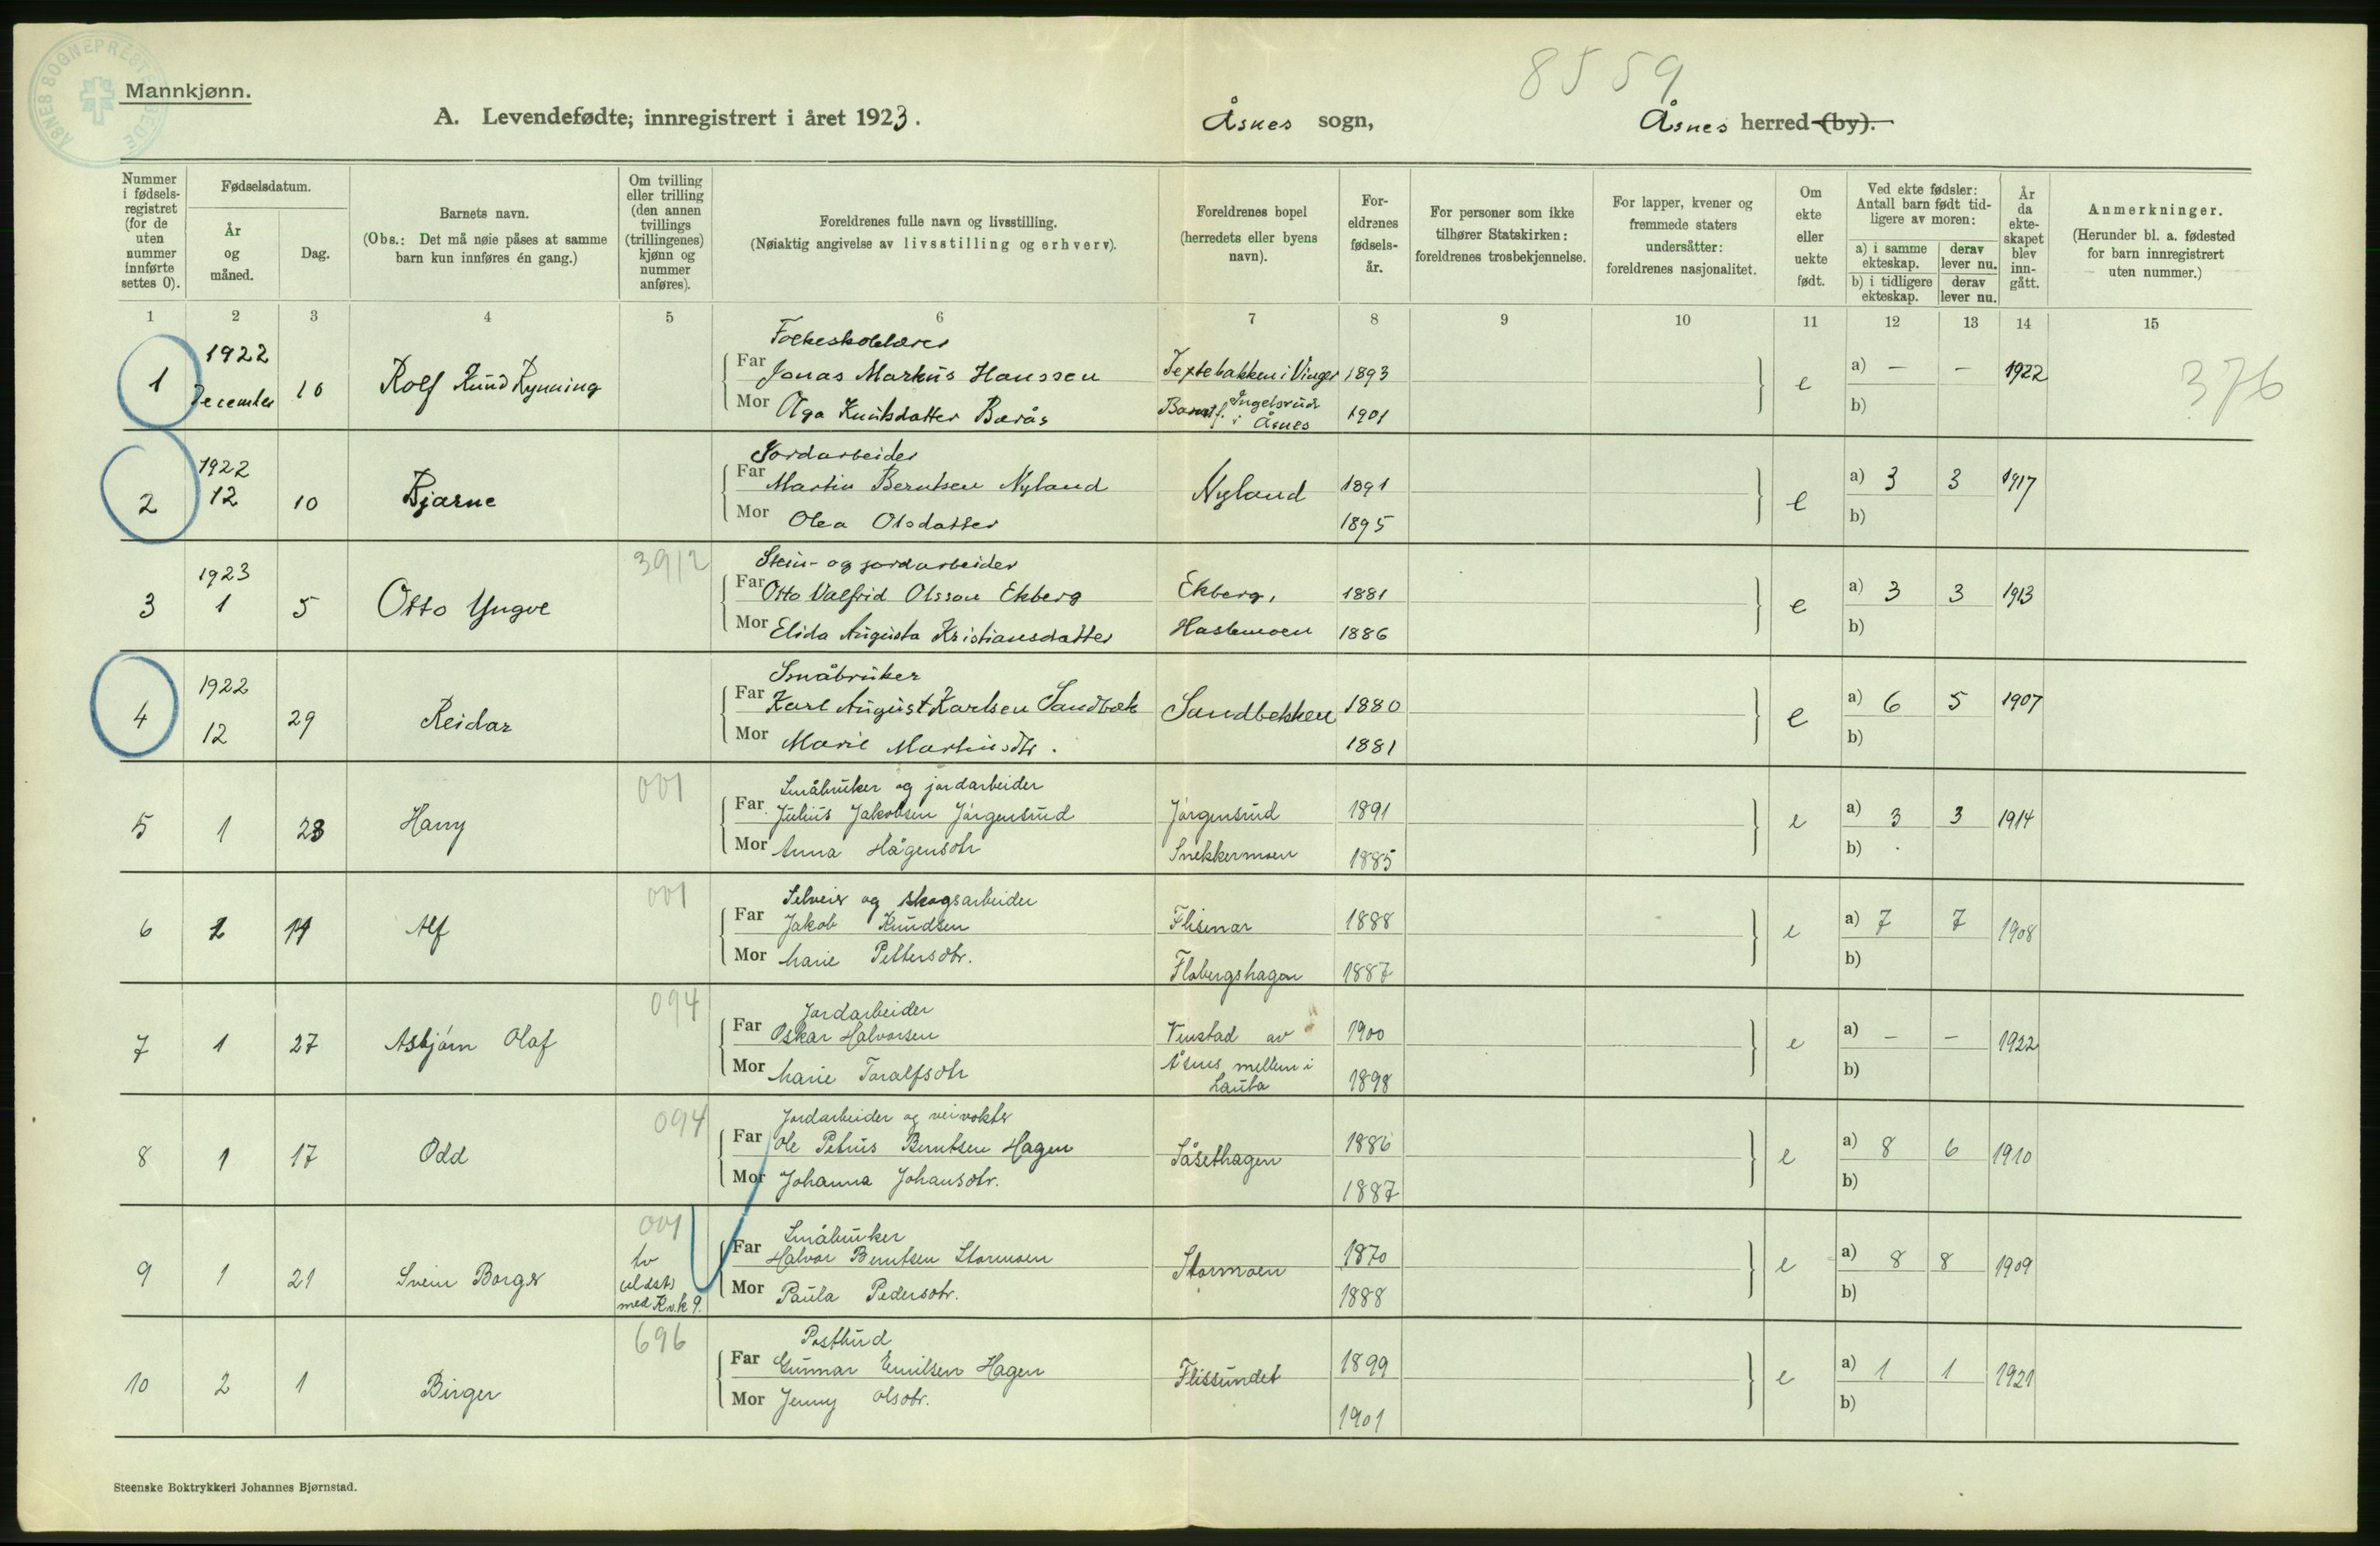 ÅSNES SOGNEPRESTEMBEDE
8559
Mannkjønn.
A. Levendefødte; innregistrert i året 1923.
Åsnes sogn,
Åsnes herred (by).
Nummer i fødsels-registret (for de uten nummer innførte settes 0).
Fødselsdatum.
År og måned.
Dag.
Barnets navn.
(Obs.: Det må nøie påses at samme barn kun innføres én gang.)
Om tvilling eller trilling (den annen tvillings (trillingenes) kjønn og nummer anføres).
Foreldrenes fulle navn og livsstilling.
(Nøiaktig angivelse av livsstilling og erhverv).
Foreldrenes bopel (herredets eller byens navn).
For-eldrenes fødsels-år.
For personer som ikke tilhører Statskirken: foreldrenes trosbekjennelse.
For lapper, kvener og fremmede staters undersåtter: foreldrenes nasjonalitet.
Om ekte eller uekte født.
Ved ekte fødsler: Antall barn født tid-ligere av moren:
a) i samme ekteskap.
derav lever nu.
b) i tidligere ekteskap.
derav lever nu.
År da ekte-skapet blev inn-gått.
Anmerkninger.
(Herunder bl. a. fødested for barn innregistrert uten nummer.)
1 2 3 4 5 6 7 8 9 10 11 12 13 14 15
1922 Folkeskolelærer
1 December 10 Rolf Knud Rynning Far Jonas Markus Hanssen i Vinger 1893 e a) – – 1922 376
Mor Olga Knutsdatter Berås Ingelsrud i Åsnes 1901 b)
1922 Jordarbeider
2 12 10 Bjarne Far Martin Berntsen Nyland Nyland 1891 e a) 3 3 1917
Mor Olea Olsdatter 1895 b)
1923 3912 Stein- og jordarbeider
3 1 5 Otto Yngve Far Otto Valfrid Olsson Ekberg Ekberg, 1881 e a) 3 3 1913
Mor Elida Augusta Kristiansdatter Haslemoen 1886 b)
1922 Småbruker
4 12 29 Reidar Far Karl August Karlsen Sandbæk Sandbekken 1880 e a) 6 5 1907
Mor Marie Martinsdtr. 1881 b)
001 Småbruker og jordarbeider
5 1 23 Harry Far Julius Jakobsen Jörgensrud Jörgensrud 1891 e a) 3 3 1914
Mor Anna Hågensdtr Snekkermoen 1885 b)
001 Selveier og skogsarbeider
6 1 14 Alf Far Jakob Knudsen Flisenar 1888 e a) 7 7 1908
Mor Marie Pettersdtr. Flobergshagen 1887 b)
094 Jordarbeider
7 1 27 Asbjørn Olaf Far Oskar Halvorsen av 1900 e a) – – 1922
Mor Marie Toralfsdtr Åsnes mellem i 1898 b)
094 Jordarbeider og veivokter
8 1 17 Odd Far Ole Petrus Berntsen Hagen Såsethagen 1886 e a) 8 6 1910
Mor Johanna Johansdtr. 1887 b)
001 Småbruker
9 1 21 Svein Borger tv (eldst) med Kv.k 9. Far Halvor Berntsen Stormoen Stormoen 1870 e a) 8 8 1909
Mor Paula Pedersdtr. 1888 b)
696 Postbud
10 2 1 Birger Far Gunnar Emilsen Hagen Flissundet 1899 e a) 1 1 1921
Mor Jenny Olsdtr. 1901 b)
Steenske Boktrykkeri Johannes Bjørnstad.